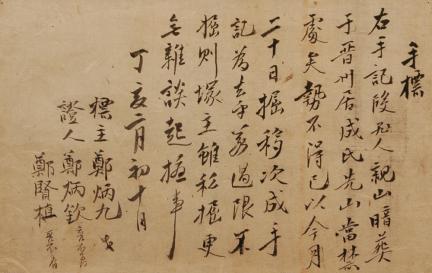 手標
右手記段矣人親山暗葬
于晋州居成氏先山當禁
處矣勢不得已以今月
二十日掘移次成手
記為去乎万過限不
掘則塚主雖私掘更
無雜談起掘事
丁亥二月初十日
標主鄭炳九
證人鄭炳欽
鄭賢植